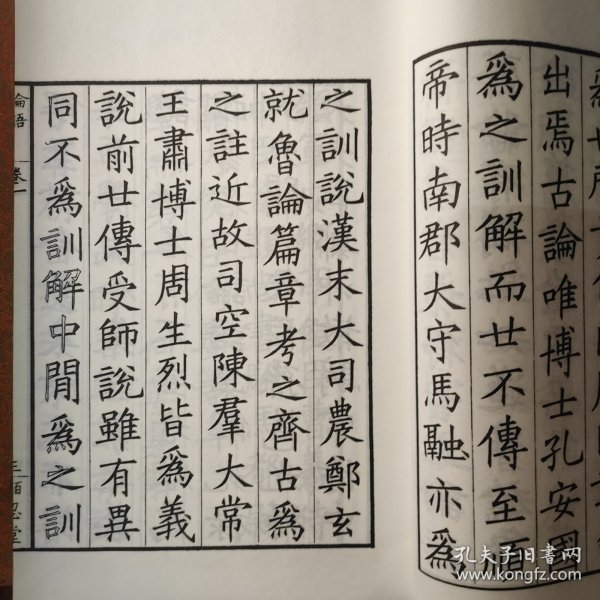 出焉古論唯博士孔安國
爲之訓解而廿不傳至順
帝時南郡大守馬融亦爲
之訓說漢末大司農鄭玄
就魯論篇章考之齊古爲
之註近故司空陳羣大常
王肅博士周生烈皆爲義
說前廿傳受師說雖有異
同不爲訓解中閒爲之訓
論語 卷一
三 百忍堂
孔夫子旧书网
www.kongfz.com